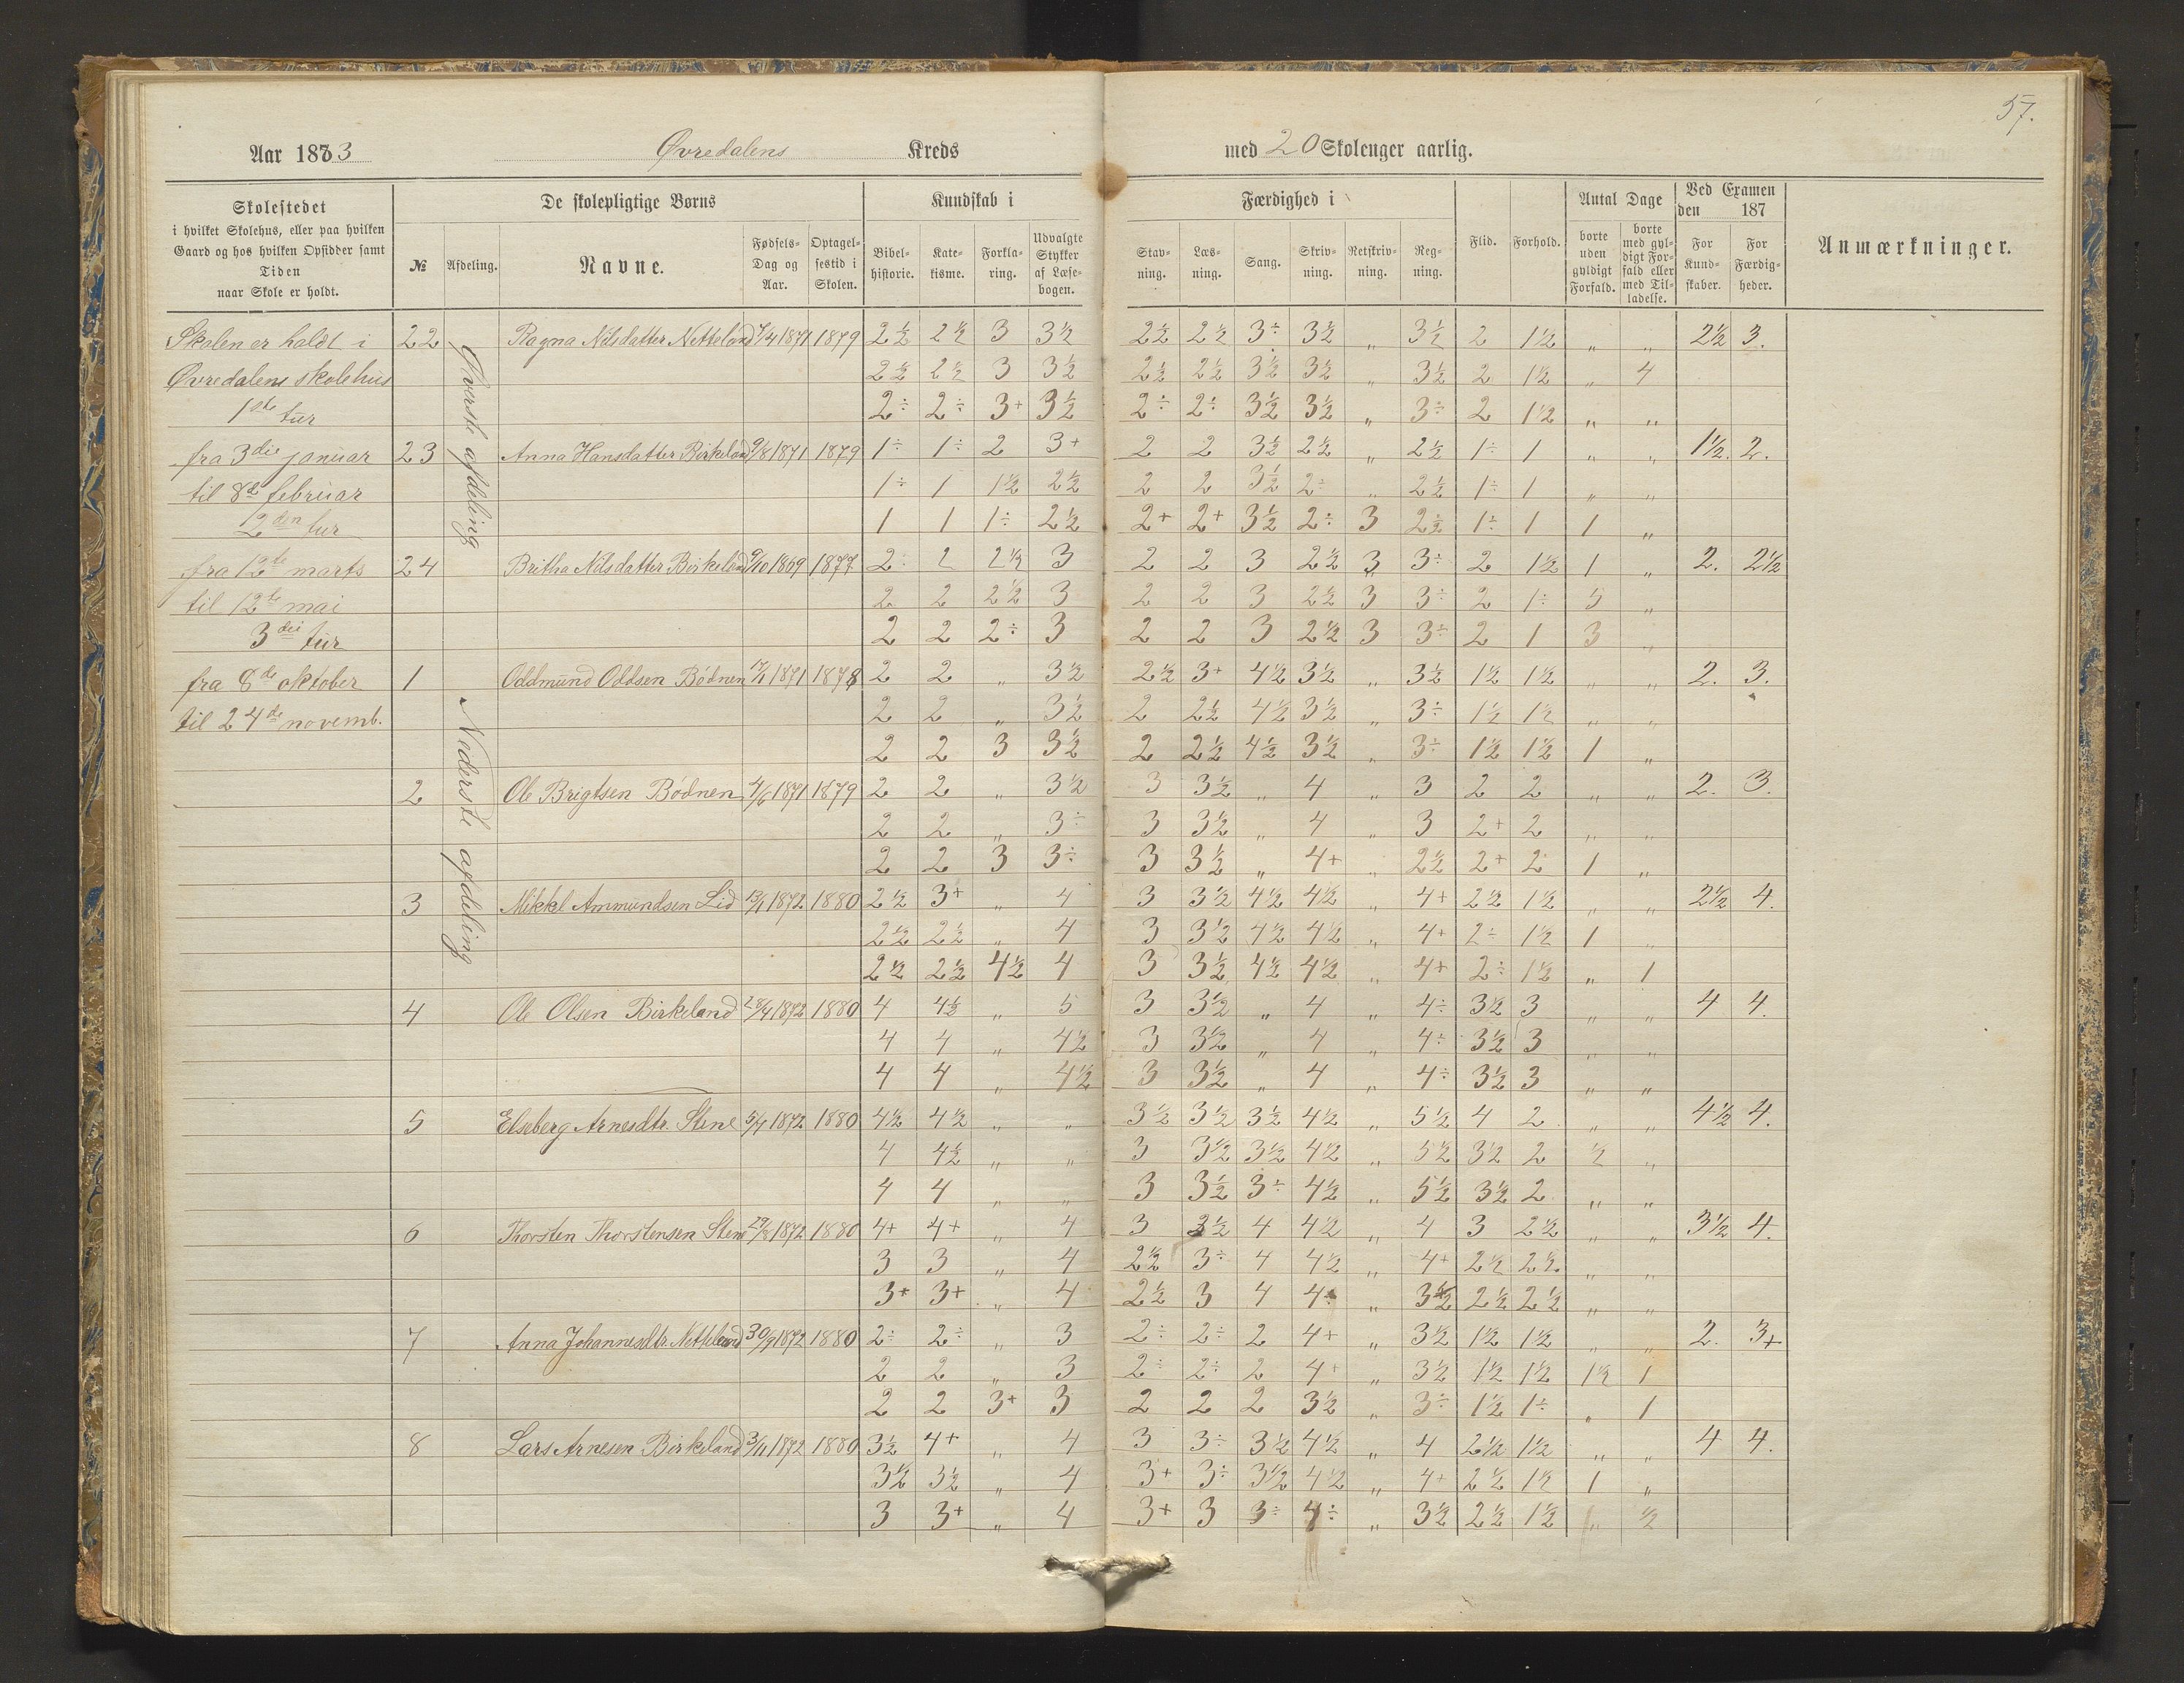 57.
Aar 1883 Øvredalens Kreds med 20 Skolenger aarlig.
Skolestedet i hvilket Skolehus, eller paa hvilken Gaard og hos hvilken Opsidder samt Tiden naar Skole er holdt.
De skolepligtige Børns
№ Afdeling. Navne. Fødsels-Dag og Aar. Optagelsestid i Skolen.
Kundskab i
Bibelhistorie. Katekisme. Forklaring. Udvalgte Stykker af Læsebogen.
Færdighed i
Stavning. Læsning. Sang. Skrivning. Retskrivning. Regning.
Flid. Forhold.
Antal Dage
borte uden gyldigt Forfald. borte med gyldigt Forfald eller med Tilladelse.
Ved Examen den 187
For Kundskaber. For Færdigheder.
Anmærkninger.
Skolen er haldt i
Øvredalens skolehus
1ste tur
fra 3die januar
til 8de februar
2den tur
fra 12te marts
til 12te mai
3die tur
fra 8de oktober
til 24de novemb.
Øverste afdeling
Nederste afdeling
22 Ragna Nilsdatter Netteland 7/4 1871 1879 2½ 2½ 3 3½ 2½ 2½ 3÷ 3½ „ 3½ 2 1½ „ „ 2½ 3.
2½ 2½ 3 3½ 2½ 2½ 3½ 3½ „ 3½ 2 1½ „ 4
2÷ 2÷ 3+ 3½ 2÷ 2÷ 3½ 3½ „ 3÷ 2 1½ „ „
23 Anna Hansdatter Birkeland 9/8 1871 1879 1÷ 1÷ 2 3+ 2 2 3½ 2½ „ 2½ 1÷ 1 „ „ 1½. 2.
1÷ 1 1½ 2½ 2 2 3½ 2÷ „ 2½ 1÷ 1 „ „
1 1 1÷ 2½ 2+ 2+ 3½ 2÷ 3 2½ 1÷ 1 1 „
24 Britha Nilsdatter Birkeland 9/10 1869 1877 2÷ 2 2½ 3 2 2 3 2½ 3 3÷ 2 1½ 1 „ 2. 2½
2 2 2½ 3 2 2 3 2½ 3 3÷ 2 1÷ 5 „
2 2 2÷ 3 2 2 3 2½ 3 3÷ 2 1 3 „
1 Oddmund Oddsen Bødnen 17/1 1871 1878 2 2 „ 3½ 2½ 3+ 4½ 3½ „ 3½ 1½ 1½ „ „ 2. 3.
2 2 „ 3½ 2 2½ 4½ 3½ „ 3÷ 1½ 1½ „ „
2 2 3 3½ 2 2½ 4½ 3½ „ 3÷ 1½ 1½ 1 „
2 Ole Brigtsen Bødnen 4/6 1871 1879 2 2 „ 3½ 3 3½ „ 4 „ 3 2 2 „ „ 2. 3.
2 2 „ 3÷ 3 3½ „ 4 „ 3 2+ 2 „ „
2 2 3 3÷ 3 3½ „ 4+ „ 2½ 2+ 2 1 „
3 Mikkel Ammundsen Lid 13/1 1872 1880 2½ 3+ „ 4 3 3½ 4½ 4½ „ 4+ 2½ 1½ „ „ 2½ 4.
2½ 2½ „ 4 3 3½ 4½ 4½ „ 4+ 2÷ 1½ 1 „
2½ 2½ 4½ 4 3 3½ 4½ 4½ „ 4+ 2÷ 1½ „ 1
4 Ole Olsen Birkeland 28/4 1872 1880 4 4½ „ 5 3 3½ „ 4 „ 4÷ 3½ 3 „ „ 4 4.
4 4 „ 4½ 3 3½ „ 4 „ 4÷ 3½ 3 „ „
4 4 „ 4½ 3 3½ „ 4 „ 4÷ 3½ 3 „ „
5 Elseberg Arnesdtr. Stene 5/4 1872 1880 4½ 4½ „ „ 3½ 3½ 3½ 4½ „ 5½ 4 2 „ „ 4½ 4.
4 4½ „ „ 3 3½ 3½ 4½ „ 5½ 3½ 2 ½ „
4 4 „ „ 3 3½ 3÷ 4½ „ 5½ 3½ 2 „ „
6 Thorsten Thorstensen Stene 29/8 1872 1880 4+ 4+ „ 4 3 3½ 4 4½ „ 4 3 2½ „ „ 3½ 4.
3 3 „ 4 2½ 3÷ 4 4½ „ 4+ 2½ 2½ „ „
3+ 3+ „ 4 2½ 3 4 4÷ „ 3½ 2½ 2½ „ „
7 Anna Johannesdtr. Netteland 30/9 1872 1880 2÷ 2÷ „ 3 2÷ 2÷ 2 4+ „ 3½ 1½ 1½ „ „ 2. 3+
2 2 „ 3 2÷ 2÷ 2 4+ „ 3½ 1½ 1½ 1½ 1
2 2 3+ 3 2 2 2 3½ „ 3÷ 1½ 1÷ „ 1
8 Lars Arnesen Birkeland 3/11 1872 1880 3½ 4+ „ 4 3 3÷ 3½ 4½ „ 4 2½ 1½ „ „ 4 4.
3½ 3½ „ 4 3+ 3÷ 3½ 4½ „ 4+ 2½ 1½ 1 „
3 3+ „ 4 3+ 3 3÷ 4÷ „ 3½ 2½ 1½ „ ½